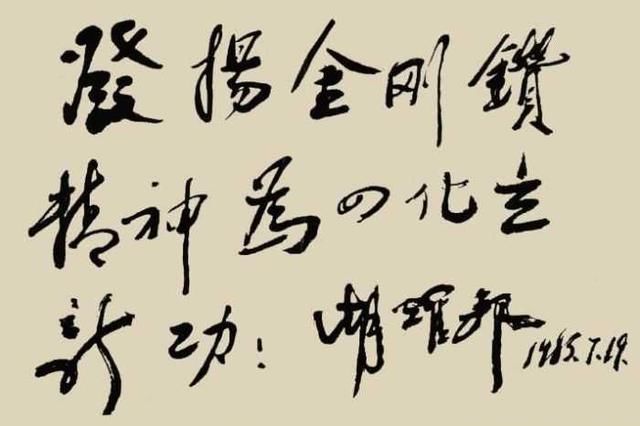 發揚金刚鑽
精神為四化立
新功！胡耀邦 1985.7.19.